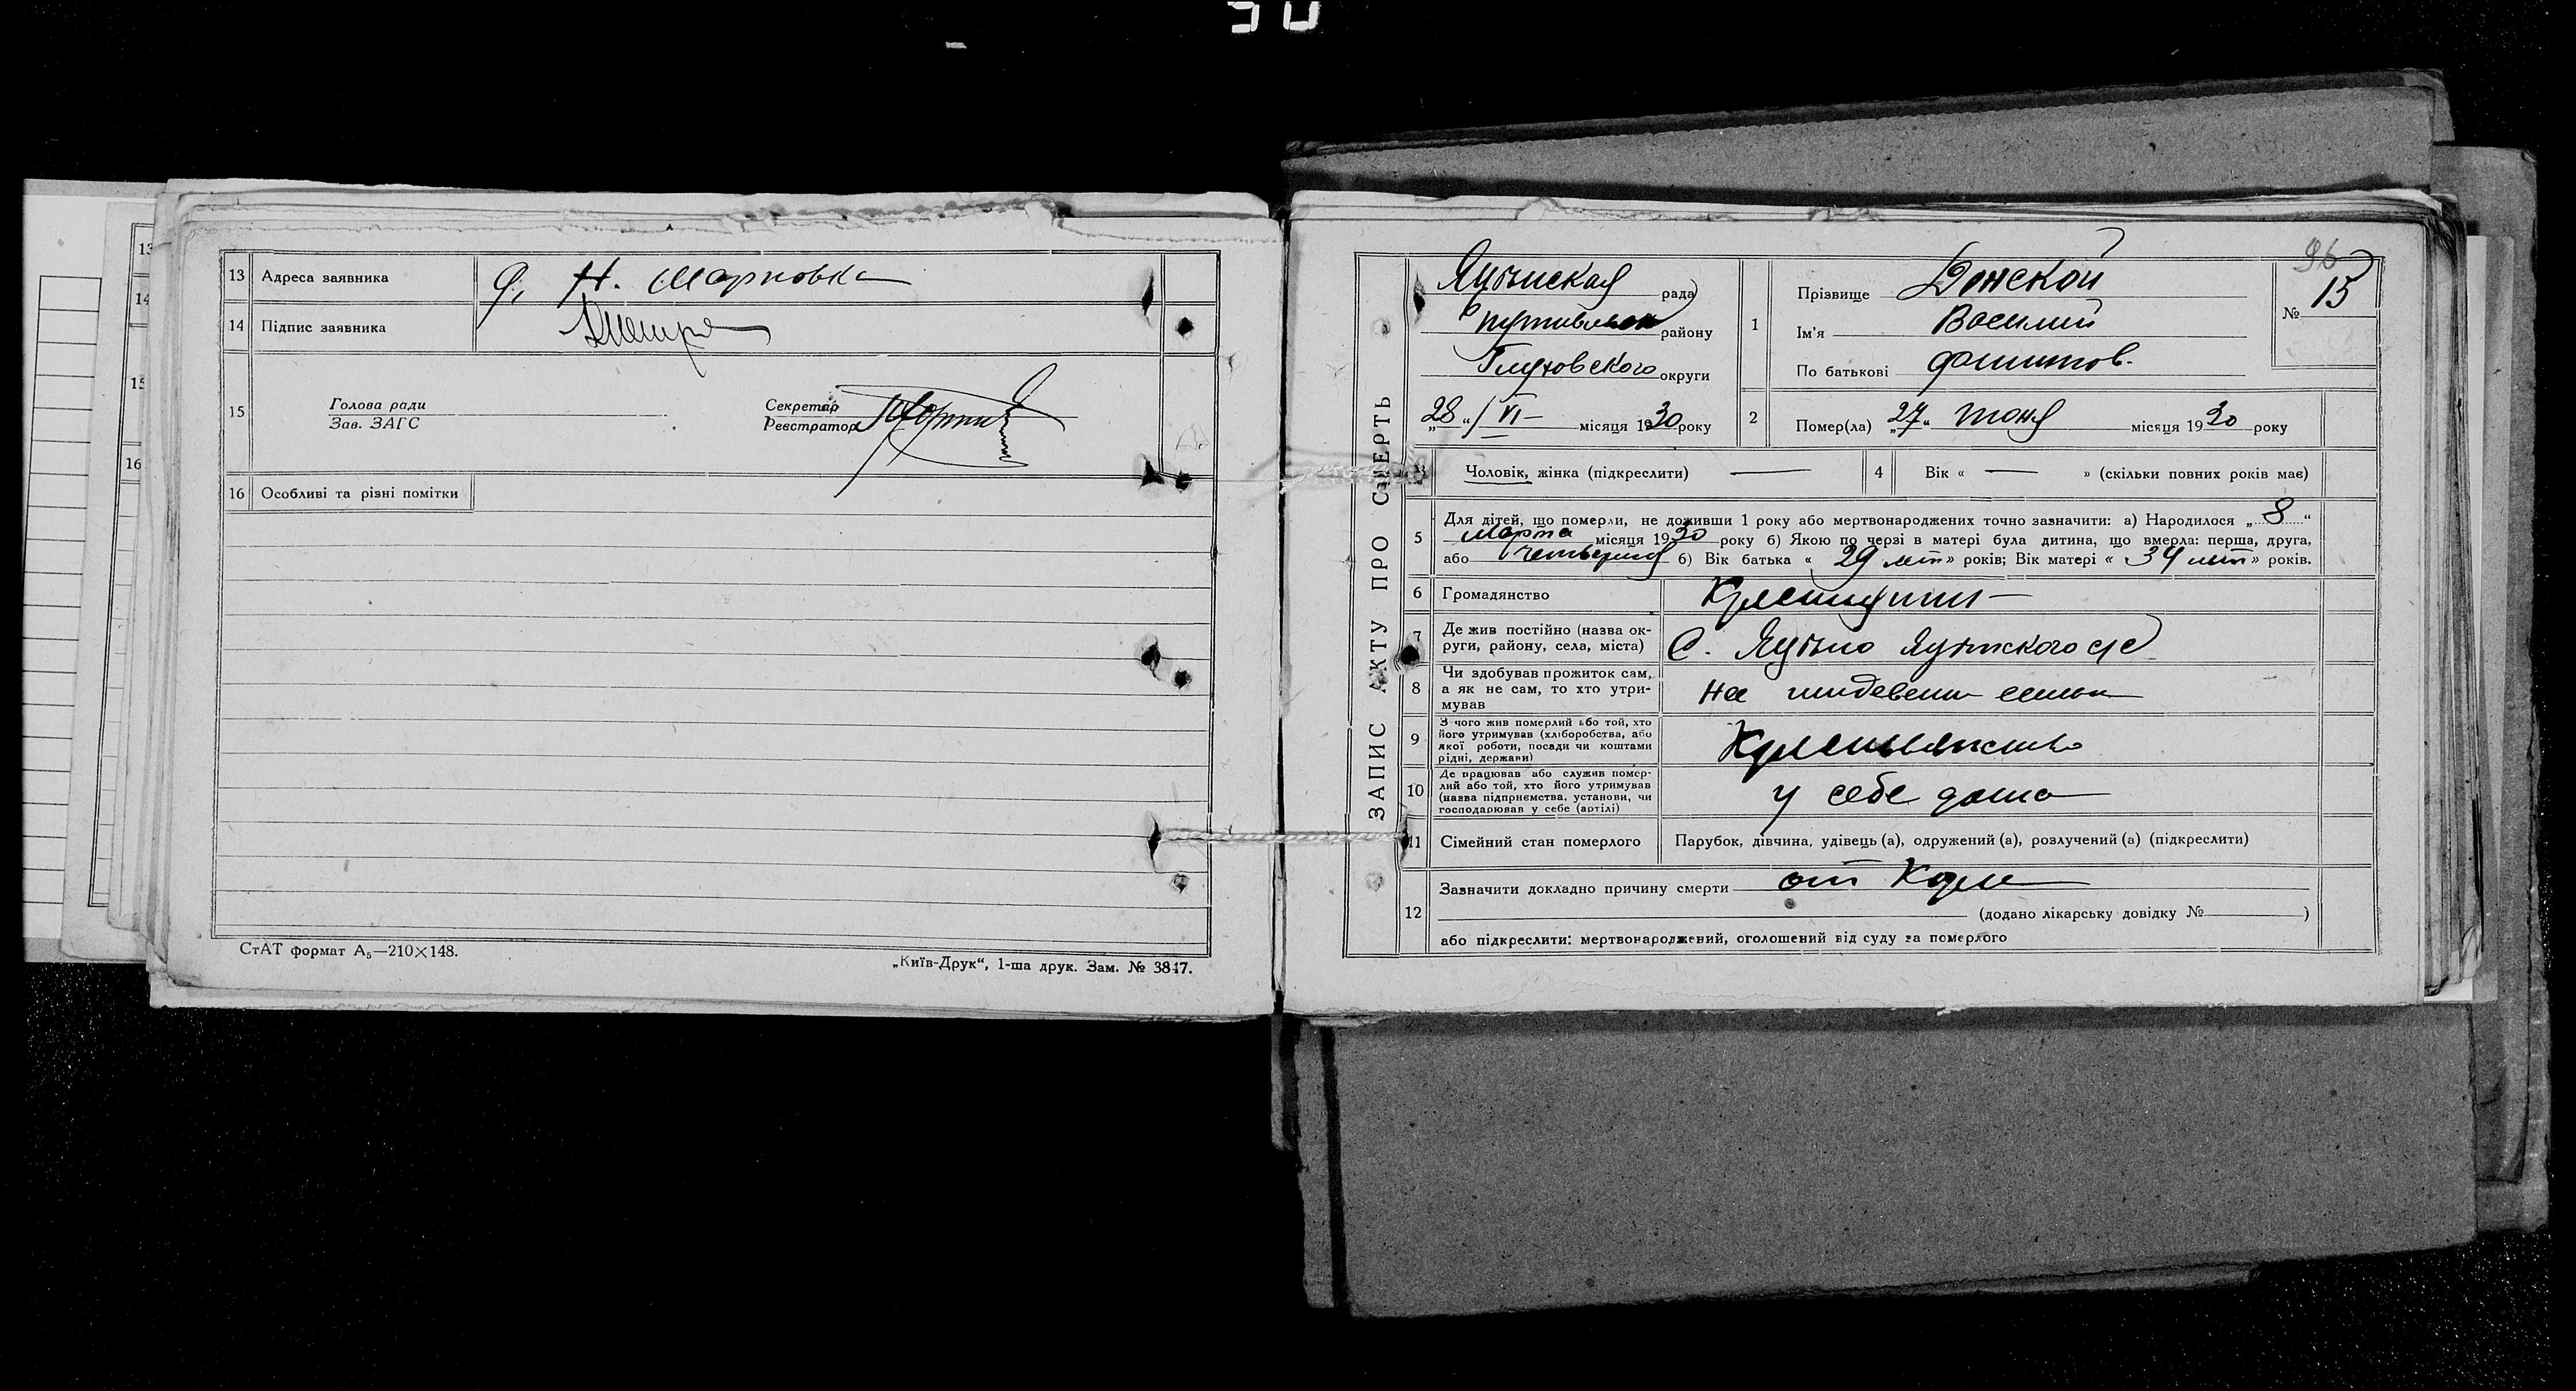 13
14
15
16
13 Адреса заявника
14 Підпис заявника
15 Голова ради
Зав. ЗАГС
Секретар
Реєстратор
16 Особливі та різні помітки
СтАТ формат А₅—210×148.
„Київ-Друк“, 1-ша друк. Зам. № 3847.
96
ЗАПИС АКТУ ПРО СМЕРТЬ
рада
району
Глуховского округи
„28“/VI— місяця 1930 року
1 Прізвище Донской
Ім'я Василий
По батькові
№ 15
2 Помер(ла) „27“ Июня місяця 1930 року
3 Чоловік, жінка (підкреслити) —
4 Вік « — » (скільки повних років має)
5 Для дітей, що померли, не доживши 1 року або мертвонароджених точно зазначити: а) Народилося „8“
Марта місяця 1930 року б) Якою по черзі в матері була дитина, що вмерла: перша, друга,
або б) Вік батька « 29 лет » років; Вік матері « 34 лет » років.
6 Громадянство
7 Де жив постійно (назва ок-
руги, району, села, міста) С.
8 Чи здобував прожиток сам,
а як не сам, то хто утри-
мував на иждевени семьи
9 З чого жив померлий або той, хто
його утримував (хліборобства, або
якої роботи, посади чи коштами
рідні, держави)
10 Де працював або служив помер-
лий або той, хто його утримував
(назва підприємства, установи, чи
господарював у себе (артілі) у себе дома
11 Сімейний стан померлого Парубок, дівчина, удівець (а), одружений (а), розлучений (а) (підкреслити)
12 Зазначити докладно причину смерти от Кори
(додано лікарську довідку № )
або підкреслити: мертвонароджений, оголошений від суду за померлого